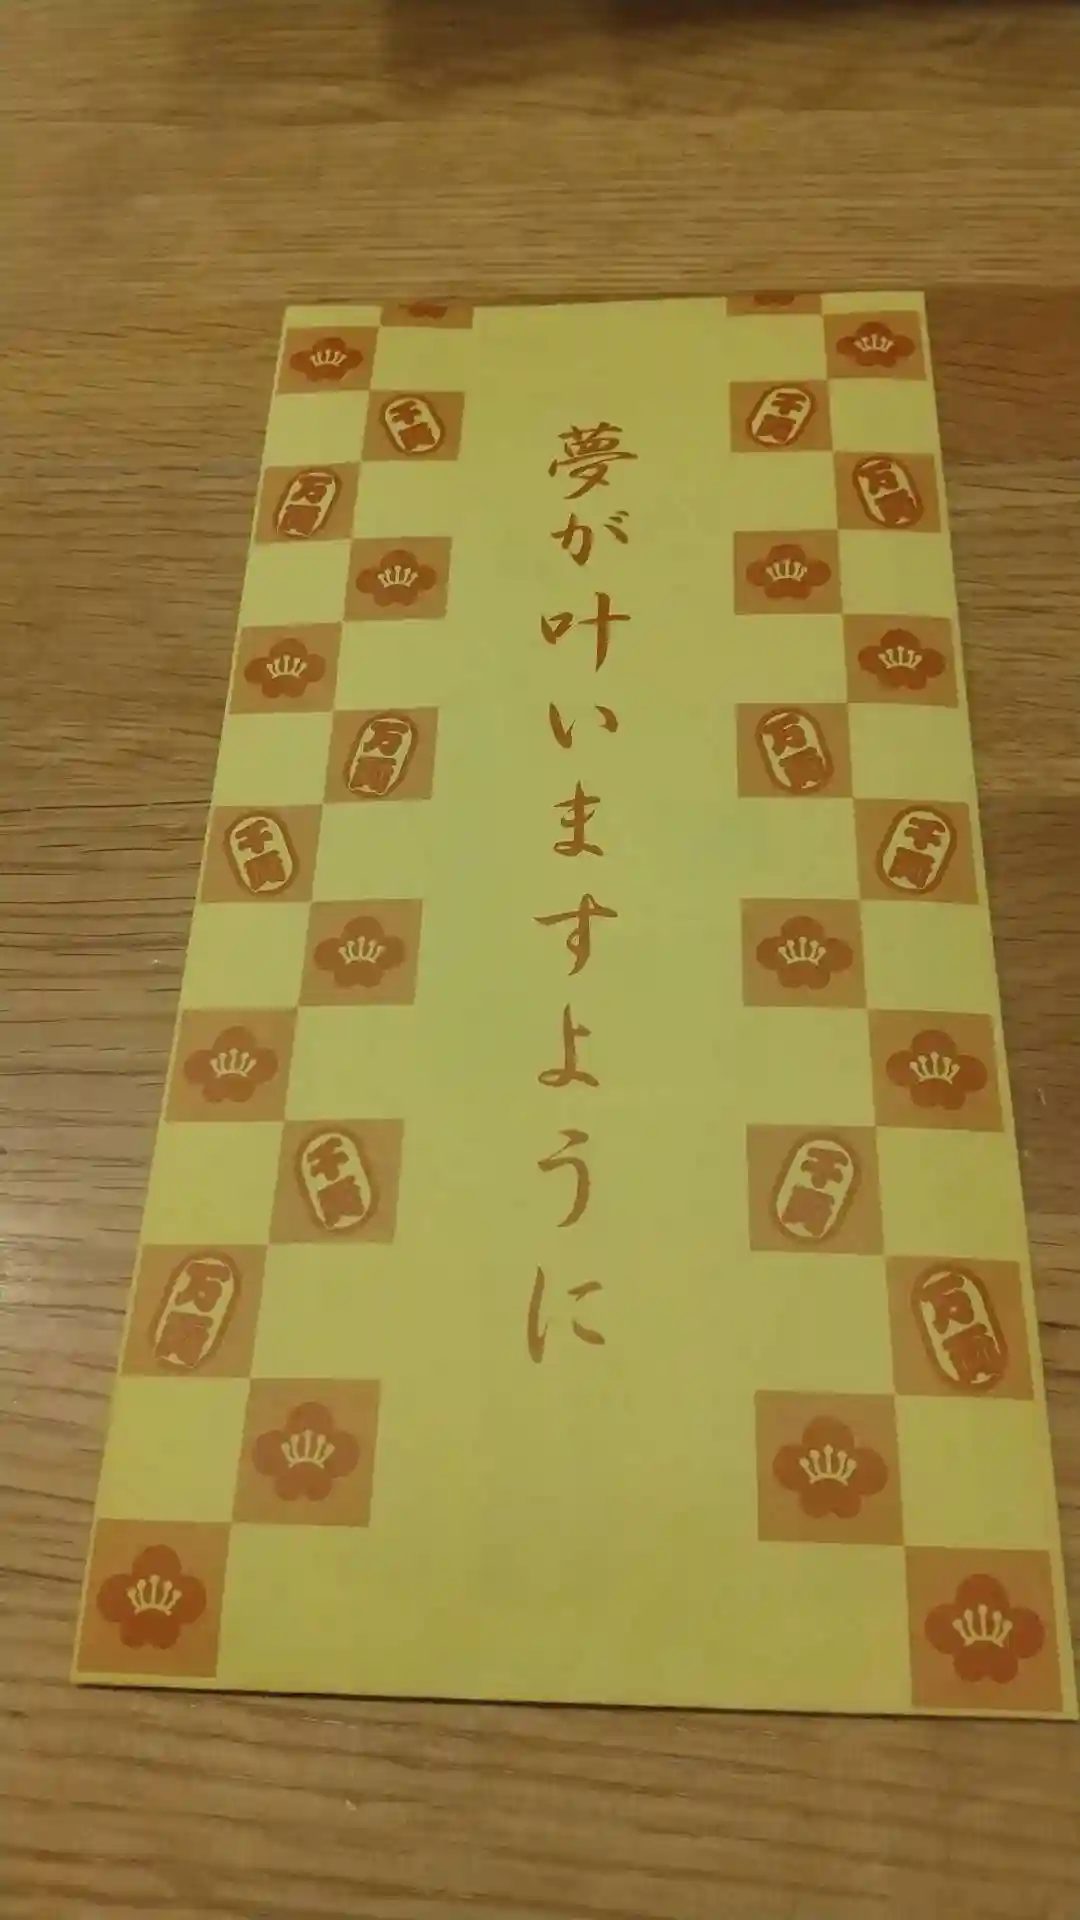 夢が叶いますように
千両
千両
万両
万両
万両
万両
千両
千両
千両
千両
万両
万両